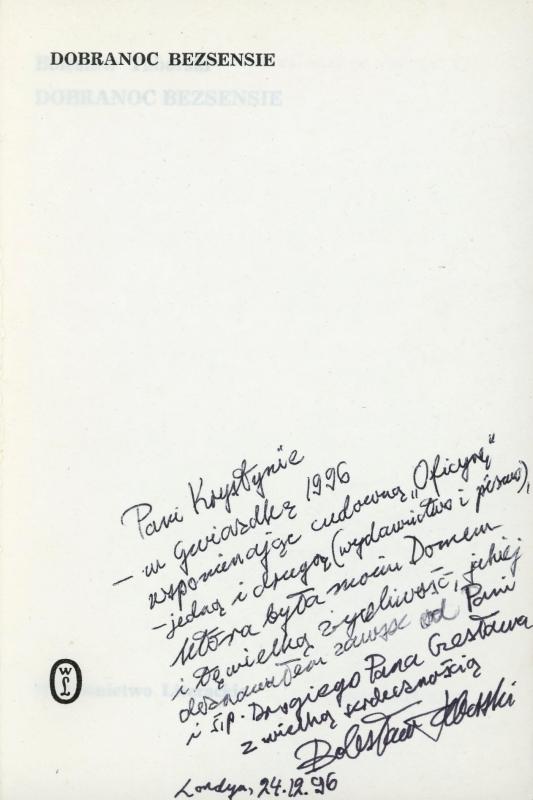 DOBRANOC BEZSENSIE
DOBRANOC BEZSENSIE
Pani Krystynie
– w gwiazdkę 1996
wspominając cudowną „Oficynę”
– jedną i drugą (wydawnictwo i pismo),
która była moim Domem
i tę wielką życzliwość, jakiej
doznawałem zawsze od Pani
i śp. Drogiego Pana Czesława
z wielką serdecznością
Bolesław Taborski
WL
Londyn, 24.12.96